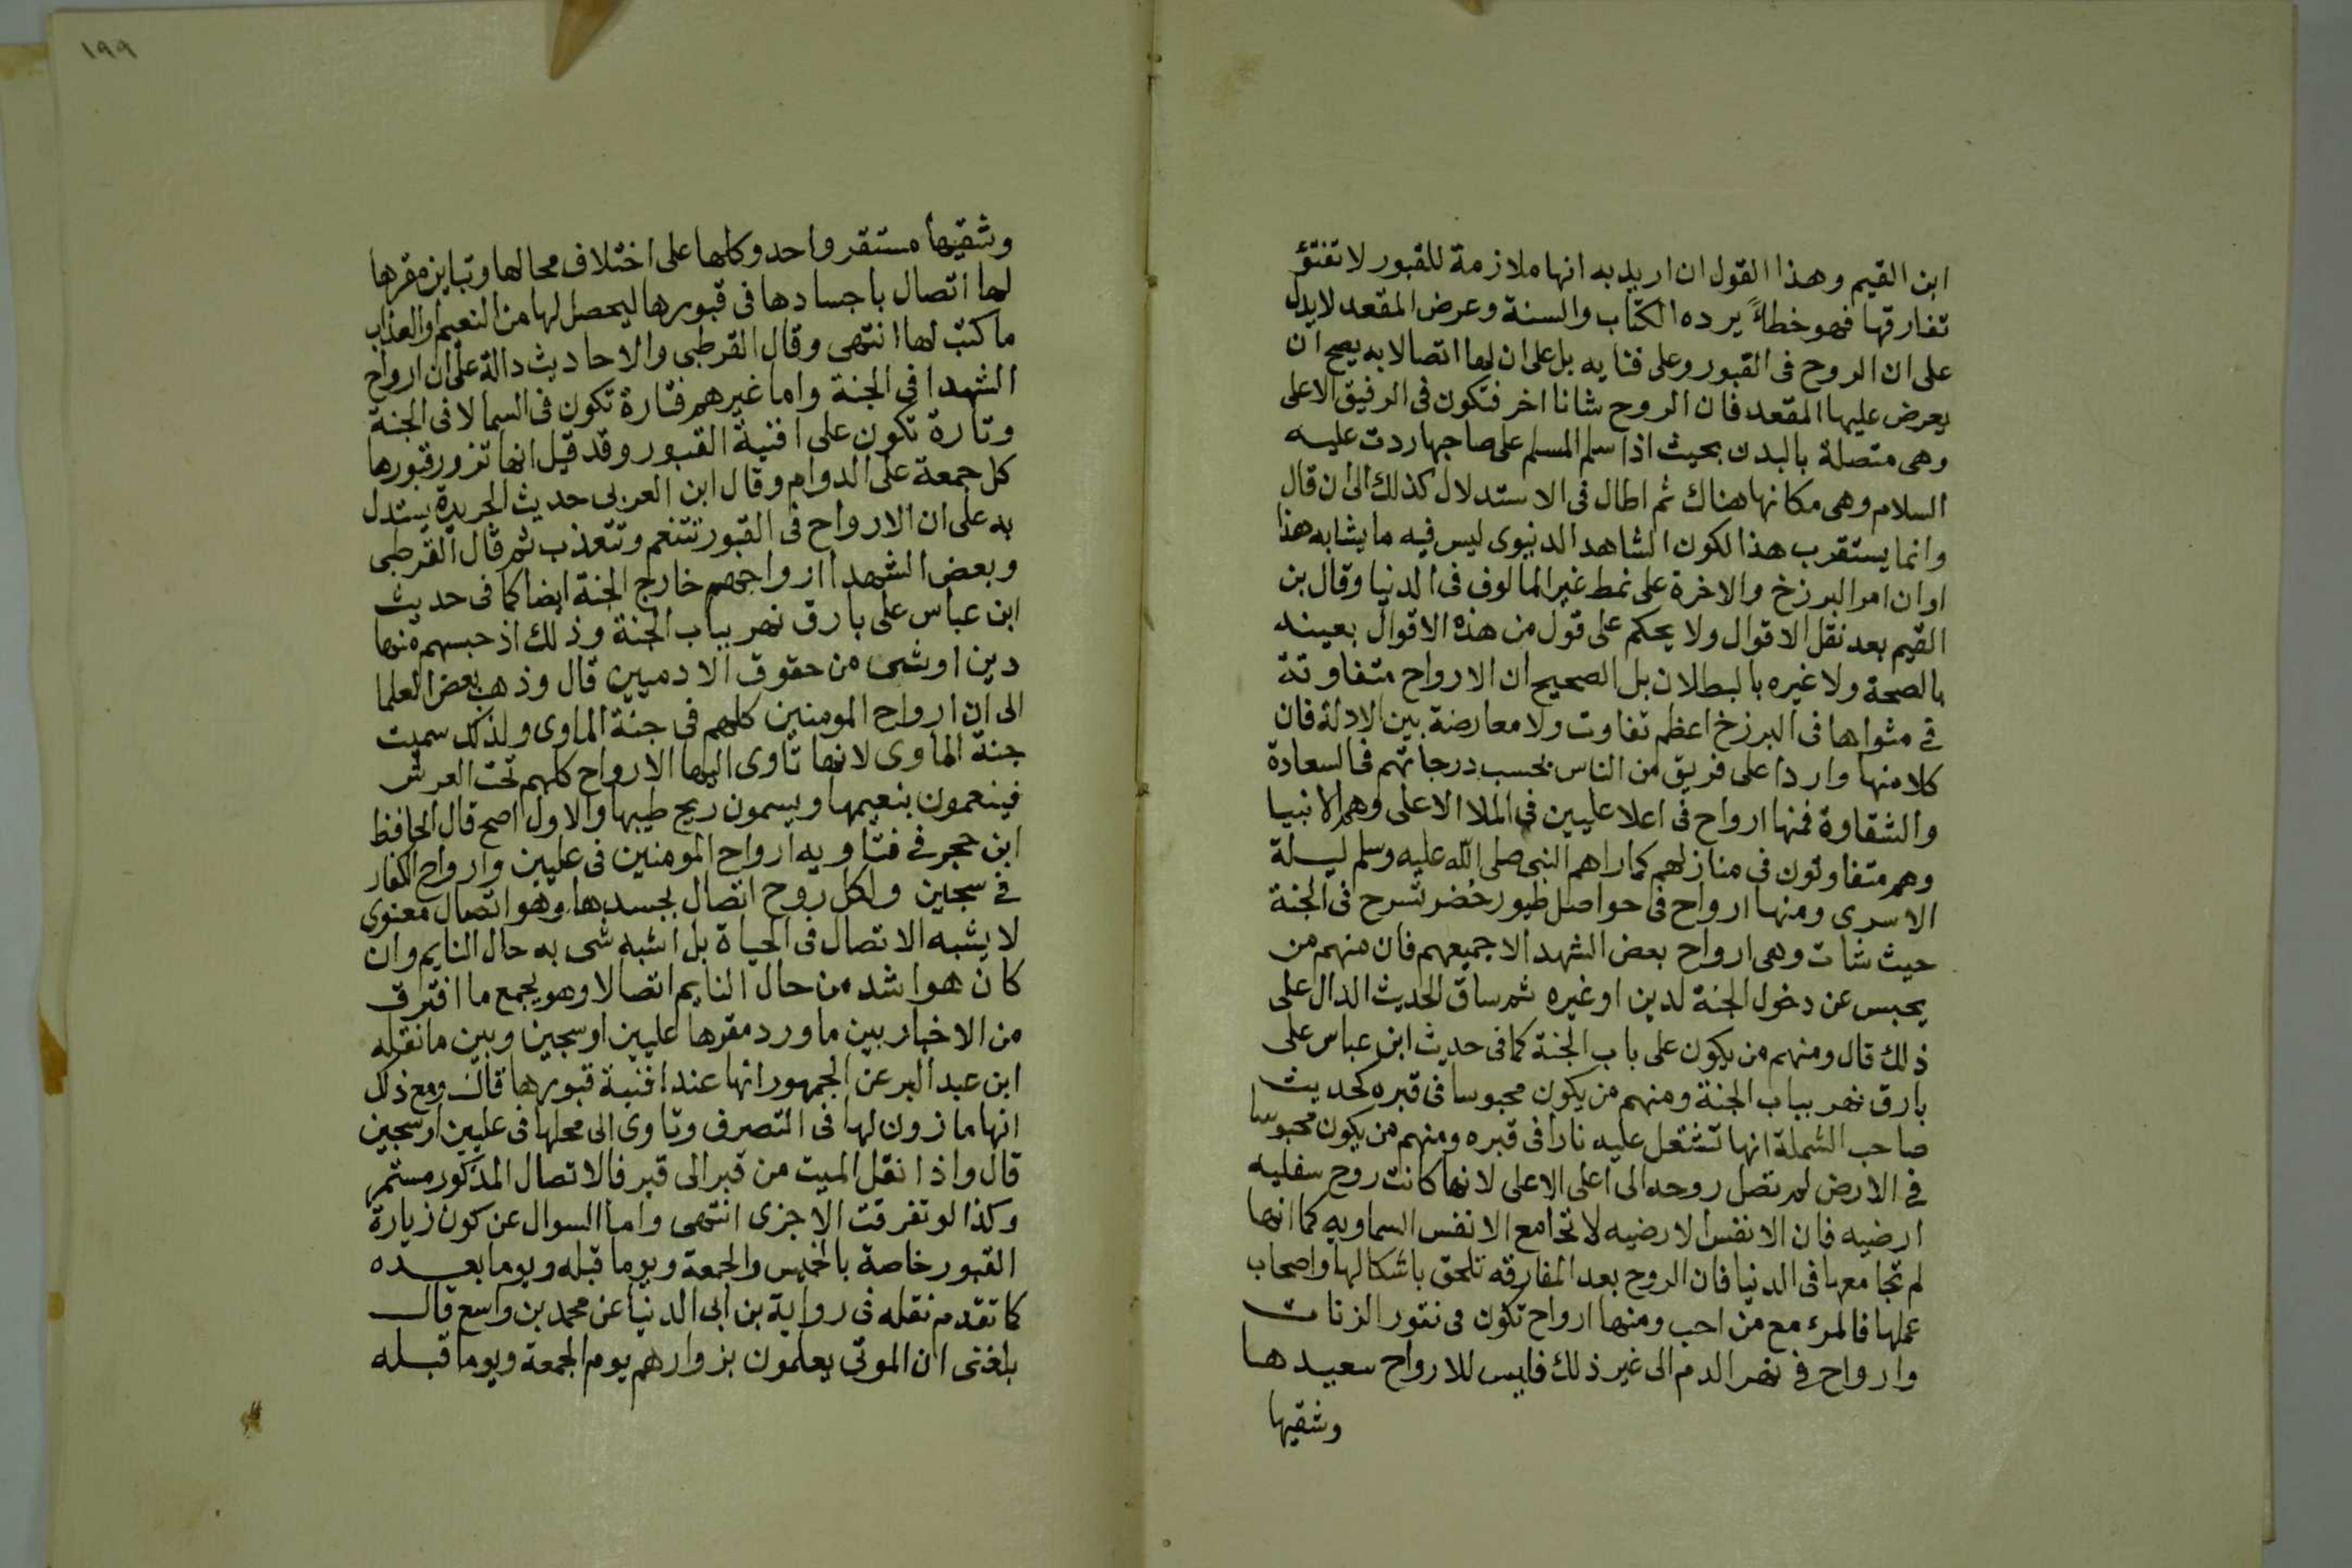 ابن القيم وهذا القول ان اريد به انها ملازمة للقبور لا تفتؤ
تفارقها فهو خطأً يرده الكتاب والسنة وعرض المقعد لا يدل
على ان الروح فى القبور وعلى فنايه بل على ان لها اتصالا به يصح ان
يعرض عليها المقعد فان الروح شانا اخر فتكون فى الرفيق الاعلى
وهى متصلة بالبدن بحيث اذا سلم المسلم على صاحبها ردت عليه
السلام وهى مكانها هناك ثم اطال فى الاستدلال كذلك الى ان قال
وانما يستقرب هذا لكون الشاهد الدنيوى ليس فيه ما يشابه هذا
او ان امر البرزخ والاخرة على نمط غير المالوف فى الدنيا وقال بن
القيم بعد نقل الاقوال ولا يحكم على قول من هذه الاقوال بعينه
بالصحة ولا غيره بالبطلان بل الصحيح ان الارواح متفاوتة
فى مثواها فى البرزخ اعظم تفاوت ولا معارضة بين الادلة فان
كلا منها واردا على فريق من الناس بحسب درجاتهم فى السعادة
والشقاوة فمنها ارواح فى اعلا عليين فى الملا الاعلى وهم الانبيا
وهم متفاوتون فى منازلهم كما راهم النبى صلى الله عليه وسلم ليلة
الاسرى ومنها ارواح فى حواصل طيور خُضر تسرح فى الجنة
حيث شات وهى ارواح بعض الشهدا لا جميعهم فان منهم من
يحبس عن دخول الجنة لدين او غيره ثم ساق الحديث الدال على
ذلك قال ومنهم من يكون على باب الجنة كما فى حديث ابن عباس على
بارق نهر بباب الجنة ومنهم من يكون محبوسا فى قبره كحديث
صاحب الشملة انها تشتعل عليه نارا فى قبره ومنهم من يكون محبوسا
فى الارض لم تصل روحه الى اعلى الاعلى لانها كانت روح سفليه
ارضيه فان الانفس الارضيه لا تجامع الانفس السماويه كما انها
لم تجامعها فى الدنيا فان الروح بعد المفارقه تلحق باشكالها واصحاب
عملها فالمرء مع من احب ومنها ارواح تكون فى نقور الزنات
وارواح فى نهر الدم الى غير ذلك فليس للارواح سعيدها
وشقيها
١٩٩
وشقيها مستقر واحد وكلها على اختلاف محالها وتباين مقرها
لها اتصال باجسادها فى قبورها ليحصل لها من النعيم او العذاب
ما كتب لها انتهى وقال القرطبى والاحاديث دالة على ان ارواح
الشهدا فى الجنة واما غيرهم فتارة تكون فى السما لا فى الجنة
وتارة تكون على افنية القبور وقد قيل انها تزور قبورها
كل جمعة على الدوام وقال ابن العربى حديث الجريدة يستدل
به على ان الارواح فى القبور تتنعم وتتعذب ثم قال القرطبى
وبعض الشهدا ارواحهم خارج الجنة ايضا كما فى حديث
ابن عباس على بارق نهر بباب الجنة وذلك اذ حبسهم منها
دين او شى من حقوق الادميين قال وذهب بعض العلما
الى ان ارواح المومنين كلهم فى جنة الماوى ولذلك سميت
جنة الماوى لانها تاوى اليها الارواح كلهم تحت العرش
فينعمون بنعيمها ويسمون ريح طيبها والاول اصح قال الحافظ
ابن حجر فى فتاويه ارواح المومنين فى عليين وارواح الكفار
فى سجين ولكل روح اتصال بجسدها وهو اتصال معنوى
لا يشبه الاتصال فى الحياة بل اشبه شى به حال النايم وان
كان هو اشد من حال النايم اتصالا وهو يجمع ما افترق
من الاخبار بين ما ورد مقرها عليين او سجين وبين ما نقله
ابن عبد البر عن الجمهور انها عند افنية قبورها قال ومع ذلك
انها ماذون لها فى التصرف وتاوى الى محلها فى عليين او سجين
قال واذا نقل الميت من قبر الى قبر فالاتصال المذكور مستمر
وكذا لو تفرقت الاجزى انتهى واما السوال عن كون زيارة
القبور خاصة بالخميس والجمعة ويوما قبله ويوما بعده
كما تقدم نقله فى رواية بن ابى الدنيا عن محمد بن واسع قال
بلغنى ان الموتى يعلمون بزوارهم يوم الجمعة ويوما قبله